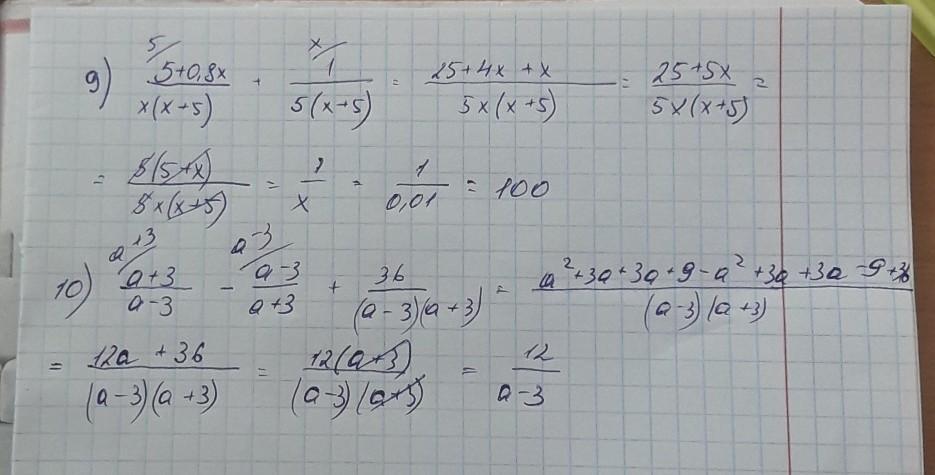 9) 5/ (5+0,8x)/(x(x+5)) + x/ 1/(5(x+5)) = (25+4x+x)/(5x(x+5)) = (25+5x)/(5x(x+5)) =
= (5(5+x))/(5x(x+5)) = 1/x = 1/0,01 = 100
10) a+3/ (a+3)/(a-3) - a-3/ (a-3)/(a+3) + 36/((a-3)(a+3)) = (a²+3a+3a+9-a²+3a+3a-9+36)/((a-3)(a+3))
= (12a+36)/((a-3)(a+3)) = (12(a+3))/((a-3)(a+3)) = 12/(a-3)